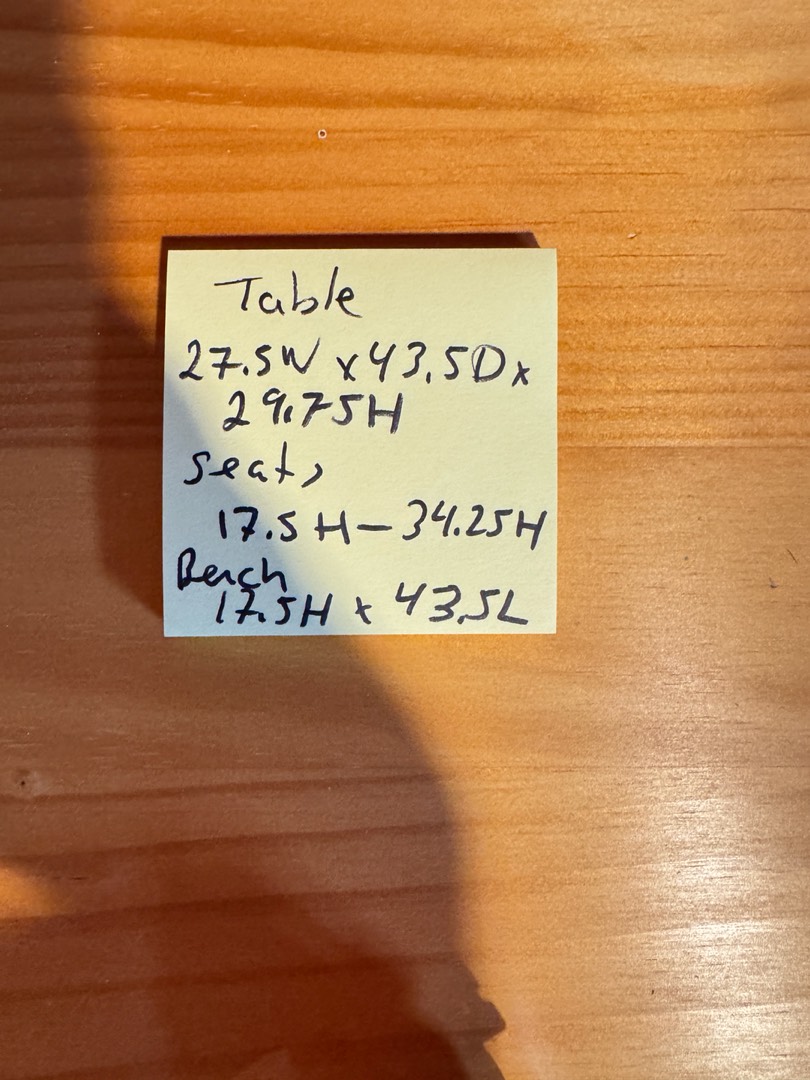 Table
27.5W x 43.5D x
29.75H
seats
17.5H – 34.25H
Bench
17.5H x 43.5L